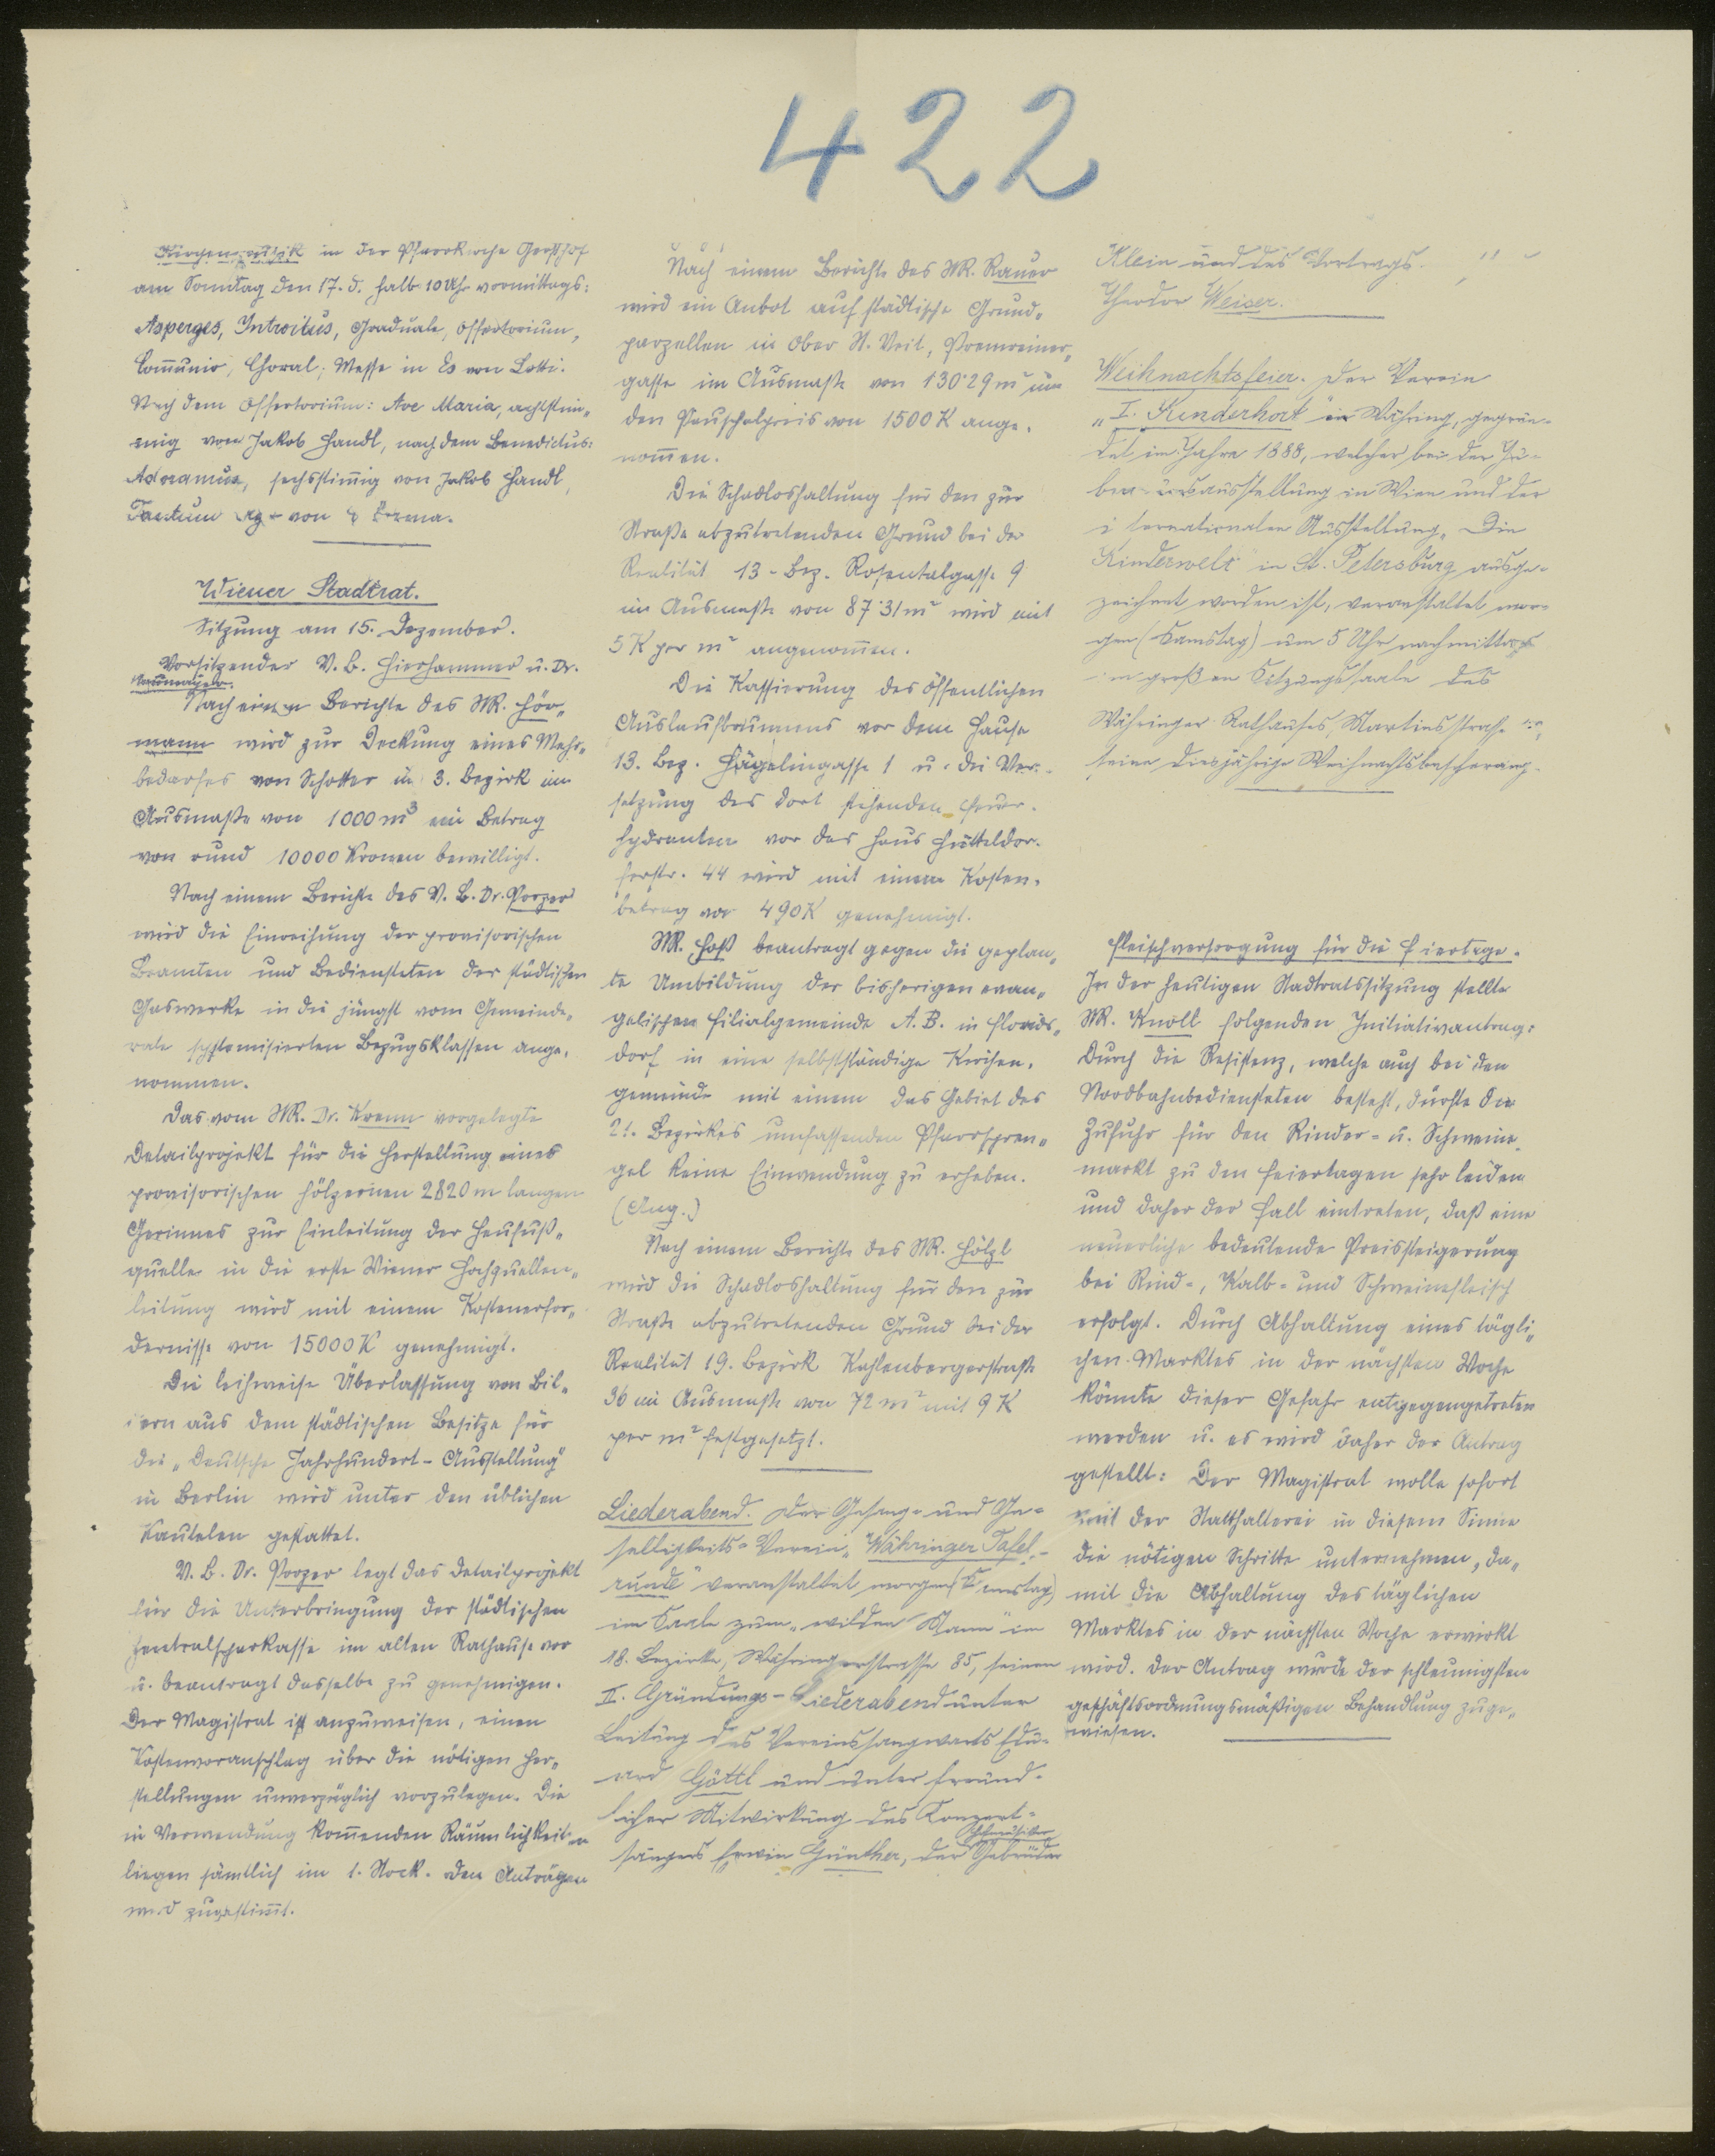 422
Kirchenmusik in der Pfarrkirche Gersthof
am Sonntag den 17. d. halb 10 Uhr vormittags:
Asperges, Introitus, Graduale, Offertorium,
Com̄unio, Choral; Messe in Es von Lotti.
Nach dem Offertorium: Ave Maria, achtstim„
mig von Jakob Handl, nach dem Benedictus:
Adoramus, sechsstim̄ig von Jakob Handl,
Tantum von
Wiener Stadtrat.
Sitzung am 15. Dezember.
Vorsitzender V. B. Hierhammer u. Dr.
Neumayer.
Nach einem Berichte des StR. Hör„
mann wird zur Deckung eines Mehr„
bedarfes von Schotter im 3. Bezirk im
Ausmaße von 1000 m³ ein Betrag
von rund 10000 Kronen bewilligt.
Nach einem Berichte des V. B. Dr. Porzer
wird die Einreihung der provisorischen
Beamten und Bediensteten der städtischen
Gaswerke in die jüngst vom Gemeinde„
rate systemisierten Bezugsklassen ange„
nommen.
Das vom StR. Dr. Krenn vorgelegte
Detailprojekt für die Herstellung eines
provisorischen hölzernen 2820 m langen
Gerinnes zur Einleitung der Heufuß„
quelle in die erste Wiener Hochquellen„
leitung wird mit einem Kostenerfor„
dernisse von 15000 K genehmigt.
Die leihweise Überlassung von Bil„
dern aus dem städtischen Besitze für
die „Deutsche Jahrhundert-Ausstellung"
in Berlin wird unter den üblichen
Kautelen gestattet.
V. B. Dr. Porzer legt das Detailprojekt
für die Unterbringung der städtischen
Zentralsparkasse im alten Rathause vor
u. beantragt dasselbe zu genehmigen.
Der Magistrat ist anzuweisen, einen
Kostenvoranschlag über die nötigen Her„
stellungen unverzüglich vorzulegen. Die
in Verwendung kom̄enden Räumlichkeiten
liegen sämtlich im 1. Stock. Den Anträgen
wird zugestim̄t.
Nach einem Berichte des StR. Rauer
wird ein Anbot auf städtische Grund„
parzellen in Ober St. Veit, Premreiner„
gasse im Ausmaße von 130·29 m² um
den Pauschalpreis von 1500 K ange„
nom̄en.
Die Schadloshaltung für den zur
Straße abzutretenden Grund bei der
Realität 13. Bez. Rosentalgasse 9
im Ausmaße von 87·31 m² wird mit
5 K per m² angenom̄en.
Die Kassierung des öffentlichen
Auslaufbrunnens vor dem Hause
13. Bez. Hägelingasse 1 u. die Ver„
setzung des dort stehenden Feuer„
hydranten vor das Haus Hütteldor„
ferstr. 44 wird mit einem Kosten„
betrag von 490 K genehmigt.
StR. Hoß beantragt gegen die geplan„
te Umbildung der bisherigen evan„
gelischen Filialgemeinde A. B. in Florids„
dorf in eine selbstständige Kirchen„
gemeinde mit einem das Gebiet des
21. Bezirkes umfassenden Pfarrspren„
gel keine Einwendung zu erheben.
(Ang.)
Nach einem Berichte des StR. Hölzl
wird die Schadloshaltung für den zur
Straße abzutretenden Grund bei der
Realität 19. Bezirk Kahlenbergerstraße
36 im Ausmaße von 72 m² mit 9 K
per m² festgesetzt.
Liederabend. Der Gesang- und Ge-
selligkeits-Verein „Währinger Tafel-
runde" veranstaltet morgen (Samstag)
im Saale zum „wilden Mann" im
18. Bezirke, Währingerstrasse 85, seinen
II. Gründungs-Liederabend unter
Leitung des Vereinssangwarts Edu-
ard Göttl und unter freund-
licher Mitwirkung des Konzert-
sängers Erwin Günther, der Gebrüder
Klein und des Vortrags-
Theodor Weiser.
Weihnachtsfeier. Der Verein
„I. Kinderhort" in Währing, gegrün-
det im Jahre 1888, welcher bei der Ju-
biläumsausstellung in Wien und der
internationalen Ausstellung „Die
Kinderwelt" in St. Petersburg ausge-
zeichnet worden ist, veranstaltet mor-
gen (Samstag) um 5 Uhr nachmittags
im großen Sitzungssaale des
Währinger Rathauses, Martinsstrasse
seine diesjährige Weihnachtsbescherung.
Fleischversorgung für die Feiertage.
In der heutigen Stadtratssitzung stellte
StR. Knoll folgenden Initiativantrag:
Durch die Resistenz, welche auch bei den
Nordbahnbediensteten besteht, dürfte die
Zufuhr für den Rinder- u. Schweine„
markt zu den Feiertagen sehr leiden
und daher der Fall eintreten, daß eine
neuerliche bedeutende Preissteigerung
bei Rind-, Kalb- und Schweinefleisch
erfolgt. Durch Abhaltung eines tägli„
chen Marktes in der nächsten Woche
könnte dieser Gefahr entgegengetreten
werden u. es wird daher der Antrag
gestellt: Der Magistrat wolle sofort
mit der Statthalterei in diesem Sinne
die nötigen Schritte unternehmen, da„
mit die Abhaltung des täglichen
Marktes in der nächsten Woche erwirkt
wird. Der Antrag wurde der schleunigsten
geschäftsordnungsmäßigen Behandlung zuge„
wiesen.